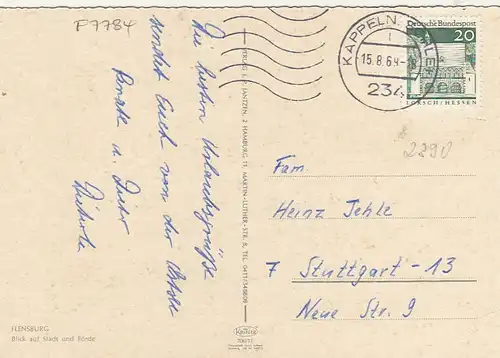 F 7784
Die besten Urlaubsgrüße
sendet Euch von der Ostsee
Renate u. Dieter
VERLAG
JANTZEN, 2 HAMBURG 13, MARTIN-LUTHER-STR. 8, TEL. 0411/
KAPPELN
15.8.69-18
234
Deutsche Bundespost
20
LORSCH/HESSEN
2290
Fam
Heinz Jehle
7 Stuttgart-13
Neue Str. 9
FLENSBURG
Blick auf Stadt und Förde